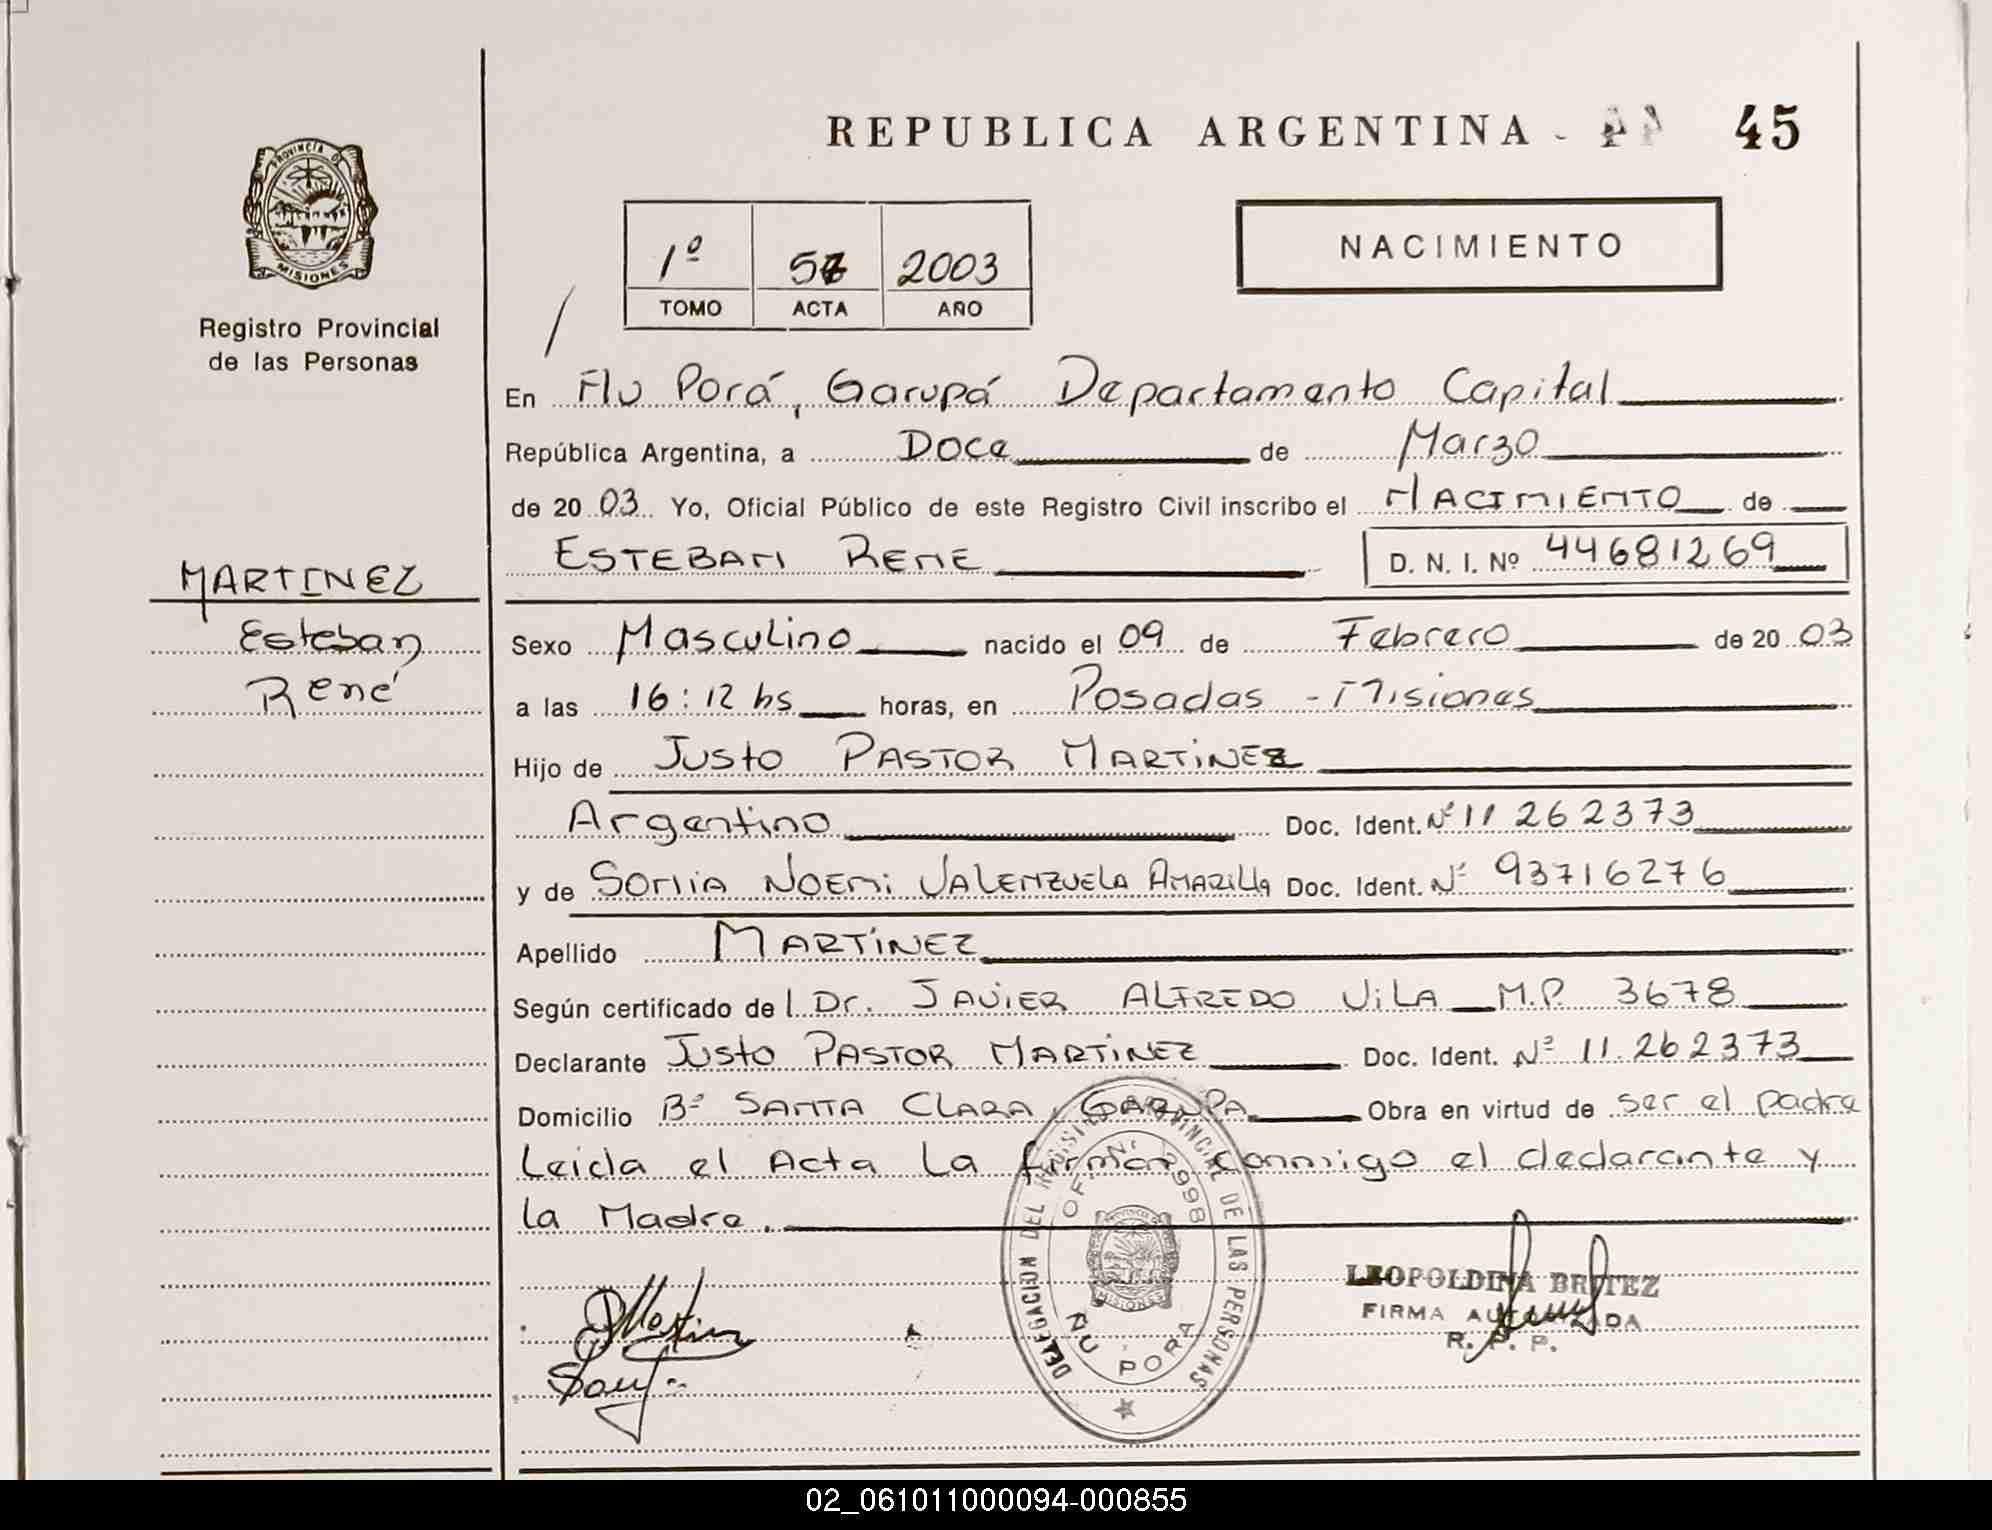 REPUBLICA ARGENTINA - 45
PROVINCIA DE
MISIONES
Registro Provincial
de las Personas
1º 2003
TOMO ACTA AÑO
NACIMIENTO
En Ñu Porá, Garupá Departamento Capital
República Argentina, a Doce de Marzo
de 20 03 Yo, Oficial Público de este Registro Civil inscribo el NACIMIENTO de
ESTEBAN RENE D. N. I. Nº 44681269
MARTINEZ
Esteban
René
Sexo Masculino nacido el 09 de Febrero de 20 03
a las 16:12 hs horas, en Posadas - Misiones
Hijo de Justo PASTOR MARTINEZ
Argentino Doc. Ident. Nº 11 262373
y de SONIA NOEMI VALENZUELA AMARILLA Doc. Ident. Nº 93716276
Apellido MARTÍNEZ
Según certificado de l Dr. JAVIER ALFREDO VILA M.P. 3678
Declarante Justo PASTOR MARTINEZ Doc. Ident. Nº 11.262373
Domicilio Bº SANTA CLARA, GARUPA Obra en virtud de ser el padre
Leida el Acta La firman conmigo el declarante y
la Madre.
DELEGACION DEL REGISTRO PROVINCIAL DE LAS PERSONAS
OF. Nº 2998
MISIONES
ÑU PORA
LEOPOLDINA BRITEZ
FIRMA AUTORIZADA
R. P. P.
02_061011000094-000855